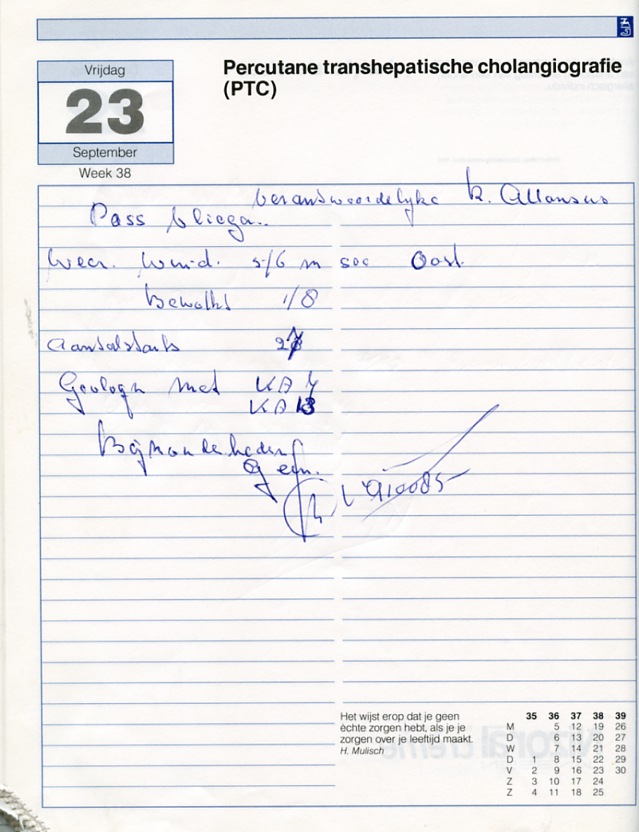 Vrijdag
23
September
Week 38
Percutane transhepatische cholangiografie
(PTC)
verantwoordelijke K.
Pass vliegen..
Weer. Wind. 5/6 m sec Oost.
Bewolkt 1/8
Aantal starts
Gevlogen met KA 7
KA 13
Bijzonderheden
geen.
Het wijst erop dat je geen
èchte zorgen hebt, als je je
zorgen over je leeftijd maakt.
H. Mulisch
35 36 37 38 39
M 5 12 19 26
D 6 13 20 27
W 7 14 21 28
D 1 8 15 22 29
V 2 9 16 23 30
Z 3 10 17 24
Z 4 11 18 25